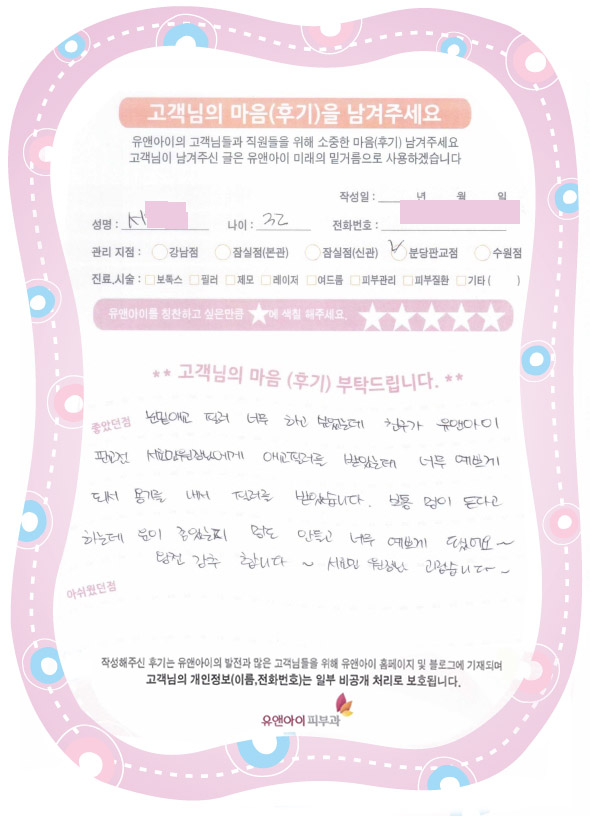 고객님의 마음(후기)을 남겨주세요
유앤아이의 고객님들과 직원들을 위해 소중한 마음(후기) 남겨주세요
고객님이 남겨주신 글은 유앤아이 미래의 밑거름으로 사용하겠습니다
작성일 : 년 월 일
성명 : 서 나이 : 32 전화번호 :
관리 지점 : 강남점 잠실점(본관) 잠실점(신관) 분당판교점 수원점
진료,시술 : 보톡스 필러 제모 레이저 여드름 피부관리 피부질환 기타 ( )
유앤아이를 칭찬하고 싶은만큼 ★에 색칠 해주세요. ★★★★★
** 고객님의 마음 (후기) 부탁드립니다. **
좋았던점 눈밑애교 필러 너무 하고 싶었는데 친구가 유앤아이
판교점 원장님에게 애교필러를 받았는데 너무 예쁘게
되서 용기를 내서 필러를 받았습니다. 보통 멍이 든다고
하는데 운이 좋았는지 멍도 안들고 너무 예쁘게 됐어요~
완전 강추 합니다 ~ 원장님 고맙습니다~
아쉬웠던점
작성해주신 후기는 유앤아이의 발전과 많은 고객님들을 위해 유앤아이 홈페이지 및 블로그에 기재되며
고객님의 개인정보(이름,전화번호)는 일부 비공개 처리로 보호됩니다.
유앤아이피부과